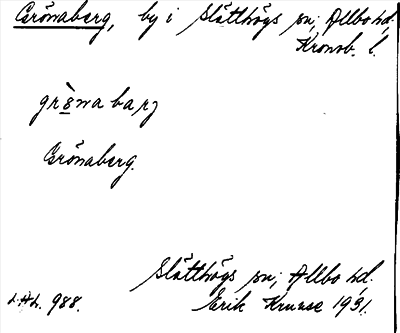 Grönaberg, by i Slätthögs sn; Allbo hd.
Kronob. l.
grø̀nabarj
Grönaberg.
Slätthögs sn; Allbo hd.
L.A.L. 988. Erik Kruuse 1931.